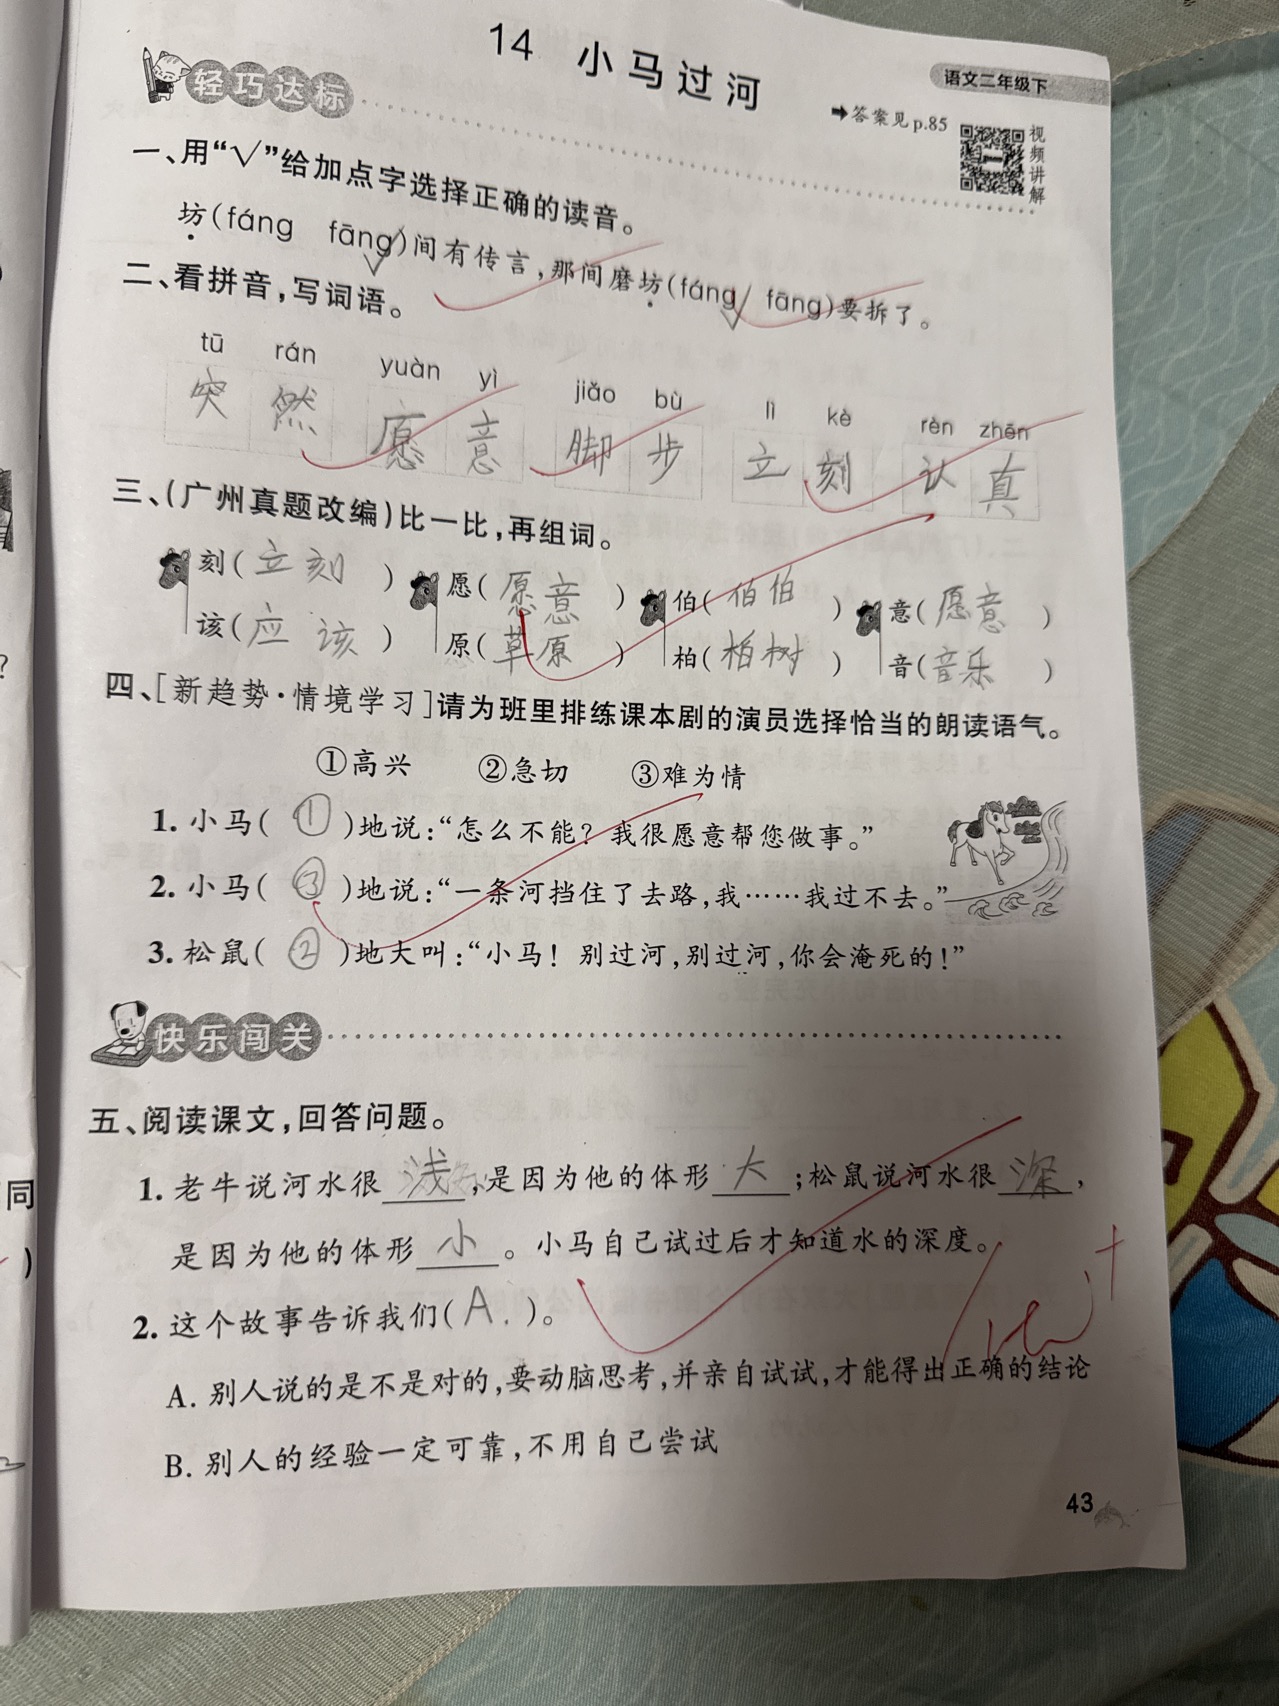 语文二年级下
14 小马过河
轻巧达标
➡答案见p.85
视频讲解
一、用“√”给加点字选择正确的读音。
坊(fáng fāng√)间有传言,那间磨坊(fáng√ fāng)要拆了。
二、看拼音,写词语。
tū rán yuàn yì jiǎo bù lì kè rèn zhēn
突然 愿意 脚步 立刻 认真
三、(广州真题改编)比一比,再组词。
刻(立刻) 愿(愿意) 伯(伯伯) 意(愿意)
该(应该) 原(草原) 柏(柏树) 音(音乐)
四、[新趋势·情境学习]请为班里排练课本剧的演员选择恰当的朗读语气。
①高兴 ②急切 ③难为情
1. 小马(①)地说:“怎么不能?我很愿意帮您做事。”
2. 小马(③)地说:“一条河挡住了去路,我……我过不去。”
3. 松鼠(②)地大叫:“小马!别过河,别过河,你会淹死的!”
快乐闯关
五、阅读课文,回答问题。
1. 老牛说河水很浅,是因为他的体形大;松鼠说河水很深,
是因为他的体形小。小马自己试过后才知道水的深度。
2. 这个故事告诉我们(A.)。
A. 别人说的是不是对的,要动脑思考,并亲自试试,才能得出正确的结论
B. 别人的经验一定可靠,不用自己尝试
43
同